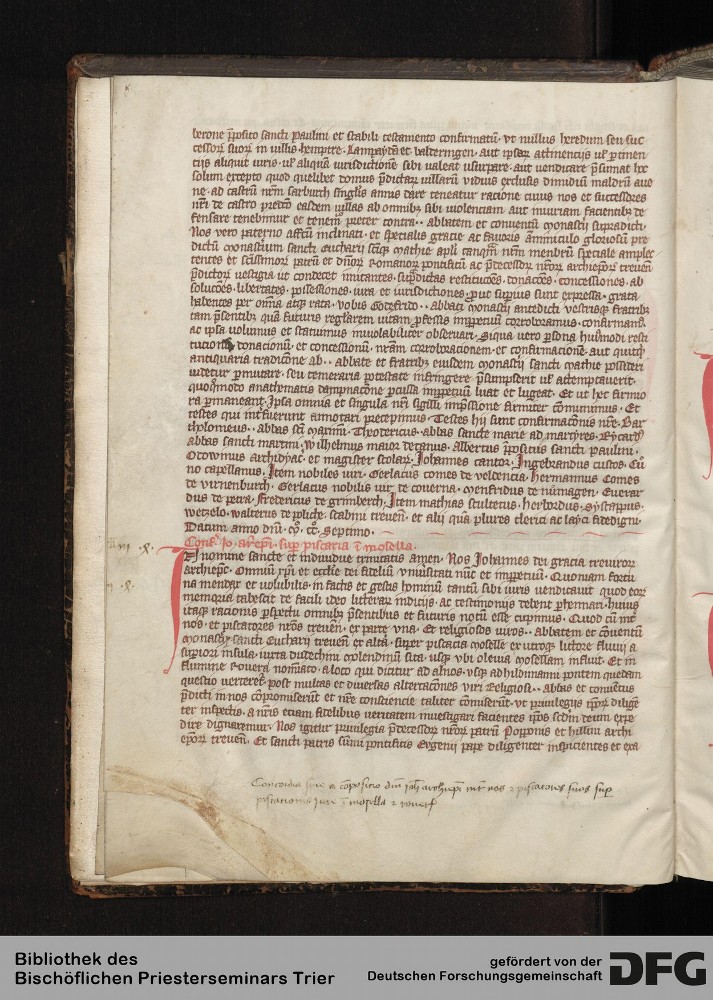 berone p̄posito sancti Paulini et stabili testamento confirmatū · vt nullus heredum seu suc
cessoꝝ suoꝝ in villis hemptre · Lampadē et valteringen · aut ipsaꝝ attinencijs ul' ꝑtinen
cijs aliquit iuris · ul' aliquā iurisdictionē sibi valeat vsurpare · aut vendicare p̄sumat hoc
solum excepto quod quelibet domus p̄dictaꝝ villarū viduis exclusis dimidiū maldrū aue
ne · ad castrū nr̄m sarburch singl'is annis dare teneatur racione cuius nos et successores
nr̄i de castro p̄dcō easdem villas ab omnibꝫ sibi violenciam aut iniuriam facientibꝫ de
fensare tenebimur et tenem᷒ preter contra · · abbatem et conuentū monasterij supradicti ·
Nos vero paterno affcū inclinati · et specialis gracie ac fauoris āminiculo gloriosū pre
dictū monasterium sancti eucharij scīqꝫ mathie apl'i tanqm̄ nr̄m menbrū speciale amplec
tentes et scissimoꝝ patrū et dn̄oꝝ Romanoꝝ pontificū ac p̄decessoꝝ nr̄oꝝ archiepōꝝ treueñ
p̄dictoꝝ vestigia ut condecet imitantes · sup̄dictas restitucōes · donacōes · concessiones · ab
solucōes · libertates · possessiones · iura et iurisdictiones ꝓut suꝑius sunt expressa · grata
habentes per om̄ia atqꝫ rata · vobis Gotefrido · · abbati monasterij antedicti vestrisqꝫ fratribꝫ
tam p̄sentibꝫ quā futuris regl'arem uitam ꝓfessis imꝑpetuū corroboramus · confirmam᷒ ·
ac ipsa volumus et statuimus inuiolabiliter obseruari · Siqua vero ꝑsona hui᷒modi resti
tucionū donacionū · et concessionū · nr̄am corroboracionem · et confirmacionē · aut quitqꝫ
antiquaria tradicōne ab · · abbate et fratribꝫ eiusdem monasterij sancti mathie possideri
uidetur ꝑmutare · seu temeraria potestate infringere p̄sumpserit ul' attemptauerit ·
quoqͦmodo anathematis dampnacōne ꝑcussa imꝑpetuū luat et lugeat · Et ut hec firmio
ra ꝑmaneant · Ipsa omnia et singula nr̄i sigilli imp̄ssione firmiter cōmunimus · Et
testes qui int'fuerunt annotari precepimus · Testes hij sunt confirmacōnis nr̄e · Bar
tholomeus · · abbas scī maximi · Theodericus · abbas sancte marie ad martyres · Rycard᷒
abbas sancti martini · Wilhelmus maior decanus · Albertus p̄positus sancti paulini ·
Otowinus archidyac᷒ et magister scolaꝝ · Johannes cantor · Ingebrandus custos · Cū
no capellanus · Item nobiles uiri · Gerlacus comes de veldencia · hermannus Comes
de virnenburch · Gerlacus nobilis uir de couerna · Menfridus de nūmagen · Euerar
dus de petra · fredericus de grimberch · Item mathias scultetus · herbordus · Systappus ·
wetzelo · walterus de ꝑliche · scabini treueñ · et alij quā plures clerici ac layci fidedigni ·
Datum anno dn̄i · mͦ · ccͦ · Septimo ·
Conf' Jo · ar̄epi · suꝑ piscaria ī mosella ·
In nomine sancte et indiuidue trinitatis amen · Nos Johannes dei gracia treuiror
archiepc̄ · Omnib᷒ xp̄i et ecclie dei fidelib᷒ vniuersitati nūc et imꝑpetuū · Quoniam fortu
na mendax et volubilis · in factis et gestis hominū tantū sibi iuris uendicauit quod eoꝝ
memoria tabescit de facili ideo litteraꝝ indicijs · ac testimonijs debent ꝑhennari · huius
itaqꝫ racionis ꝓspectu omnibꝫ p̄sentibus et futuris notū esse cupimus · Quod cū int'
nos · et piscatores nr̄os treueñ · ex parte vna · Et religiosos viros · · abbatem et cōuentū
monasterij sancti Eucharij treueñ ex altā · super piscacia moselle ex utroqꝫ littore fluuij a
suꝑiori insula · iuxta distechim molendinū sita · usqꝫ vbi olewia mosellam influit · Et in
flumine Rouera nomīato · a loco qui dicitur ad alnos · vsqꝫ ad hildimanni pontem quedam
questio verteret᷒ · post multas et diuersas altercacōnes viri Religiosi · · abbas et conuētus
p̄dicti in nos cōpromiserūt et nr̄e consciencie taliter cōmiserūt · vt priuilegijs ipoꝝ dilige
ter inspectis · a nr̄is eciam fidelibus veritatem inuestigari facientes ip̄os sedm̄ deum expe
dire dignaremur · Nos igitur priuilegia p̄decessoꝝ nr̄oꝝ patrū Popponis et hillini archi
epōꝝ treueñ · Et sancti patris sūmi pontificis Eugenij pape diligenter inspicientes et exa
Concordia siue a cōposicio dn̄i joh' archiepi int' nos ⁊ piscatores suos sup
piscationis iure ī mosella ⁊ rouerꝭ
Bibliothek des
Bischöflichen Priesterseminars Trier
gefördert von der
Deutschen Forschungsgemeinschaft
DFG